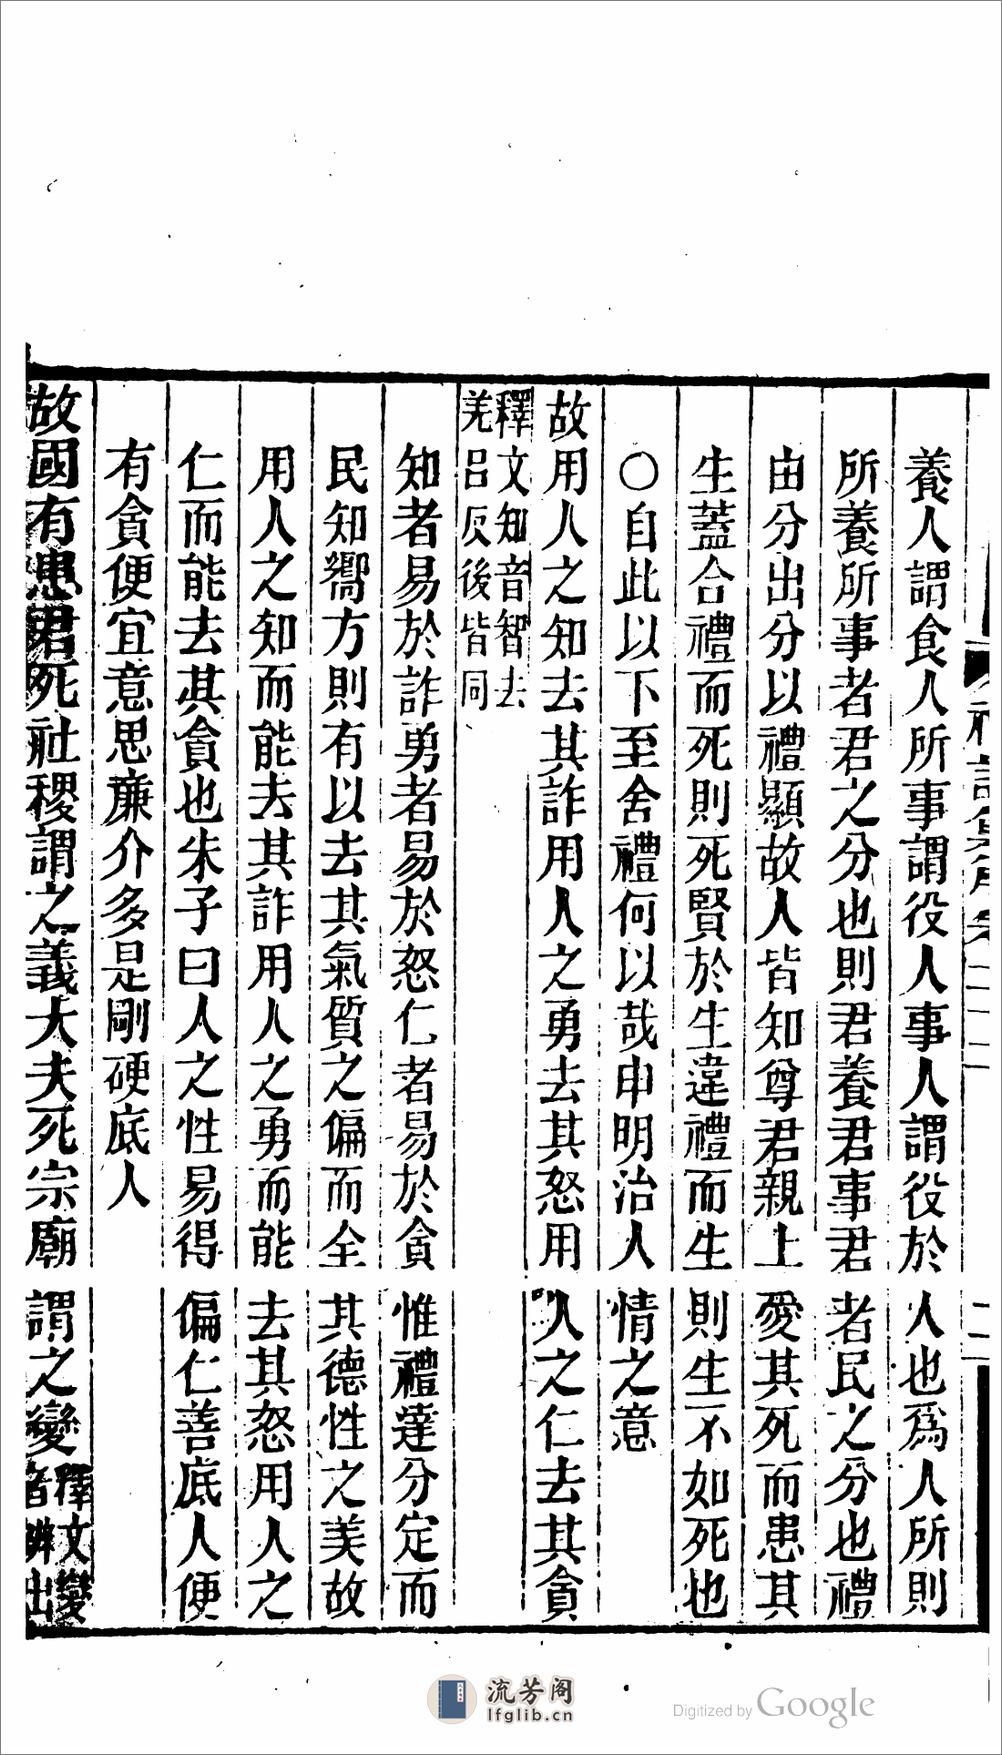 養人謂食人所事謂役人事人謂役於人也爲人所則
所養所事者君之分也則君養君事君者民之分也禮
由分出分以禮顯故人皆知尊君親上愛其死而患其
生蓋合禮而死則死賢於生違禮而生則生不如死也
○自此以下至舍禮何以哉申明治人情之意
故用人之知去其詐用人之勇去其怒用人之仁去其貪
釋文知音智去
羌呂反後皆同
知者易於詐勇者易於怒仁者易於貪惟禮達分定而
民知嚮方則有以去其氣質之偏而全其德性之美故
用人之知而能去其詐用人之勇而能去其怒用人之
仁而能去其貪也朱子曰人之性易得偏仁善底人便
有貪便宜意思廉介多是剛硬底人
故國有患君死社稷謂之義大夫死宗廟謂之變
釋文變
音辨出
流芳阁
lfglib.cn
Digitized by Google